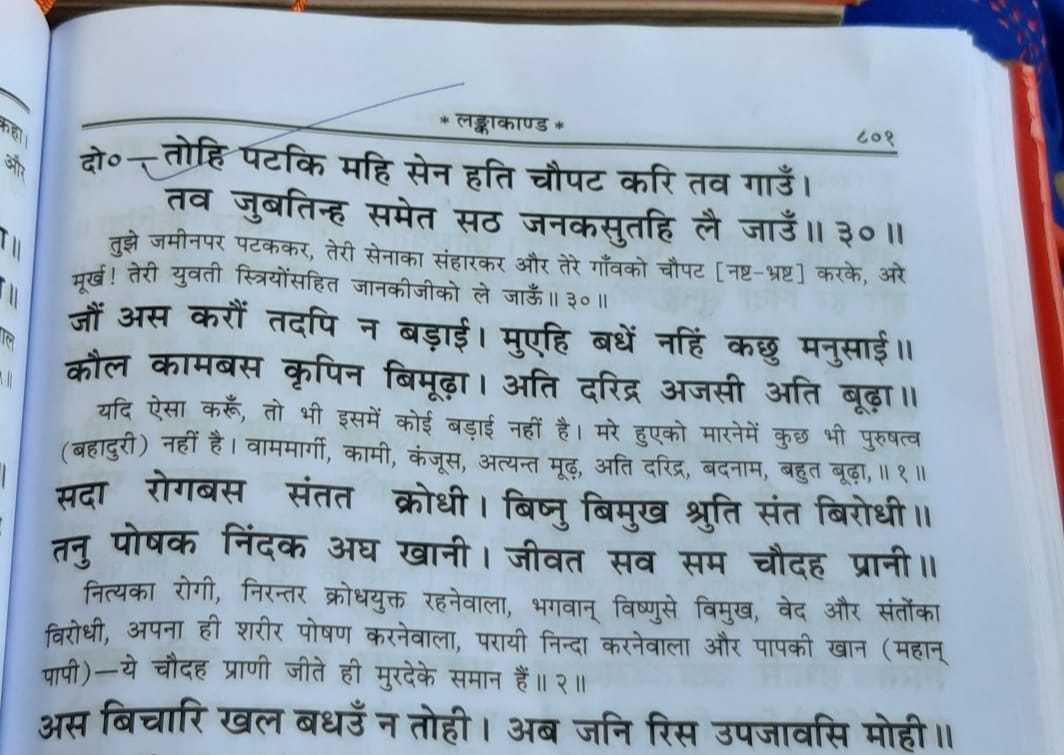 कहा।
और
* लङ्काकाण्ड *
८०१
दो०—तोहि पटकि महि सेन हति चौपट करि तव गाउँ।
तव जुबतिन्ह समेत सठ जनकसुतहि लै जाउँ॥ ३०॥
तुझे जमीनपर पटककर, तेरी सेनाका संहारकर और तेरे गाँवको चौपट [नष्ट-भ्रष्ट] करके, अरे
मूर्ख! तेरी युवती स्त्रियोंसहित जानकीजीको ले जाऊँ॥ ३०॥
जौं अस करौं तदपि न बड़ाई। मुएहि बधें नहिं कछु मनुसाई॥
कौल कामबस कृपिन बिमूढ़ा। अति दरिद्र अजसी अति बूढ़ा॥
यदि ऐसा करूँ, तो भी इसमें कोई बड़ाई नहीं है। मरे हुएको मारनेमें कुछ भी पुरुषत्व
(बहादुरी) नहीं है। वाममार्गी, कामी, कंजूस, अत्यन्त मूढ़, अति दरिद्र, बदनाम, बहुत बूढ़ा,॥ १॥
सदा रोगबस संतत क्रोधी। बिष्नु बिमुख श्रुति संत बिरोधी॥
तनु पोषक निंदक अघ खानी। जीवत सव सम चौदह प्रानी॥
नित्यका रोगी, निरन्तर क्रोधयुक्त रहनेवाला, भगवान् विष्णुसे विमुख, वेद और संतोंका
विरोधी, अपना ही शरीर पोषण करनेवाला, परायी निन्दा करनेवाला और पापकी खान (महान्
पापी)—ये चौदह प्राणी जीते ही मुरदेके समान हैं॥ २॥
अस बिचारि खल बधउँ न तोही। अब जनि रिस उपजावसि मोही॥